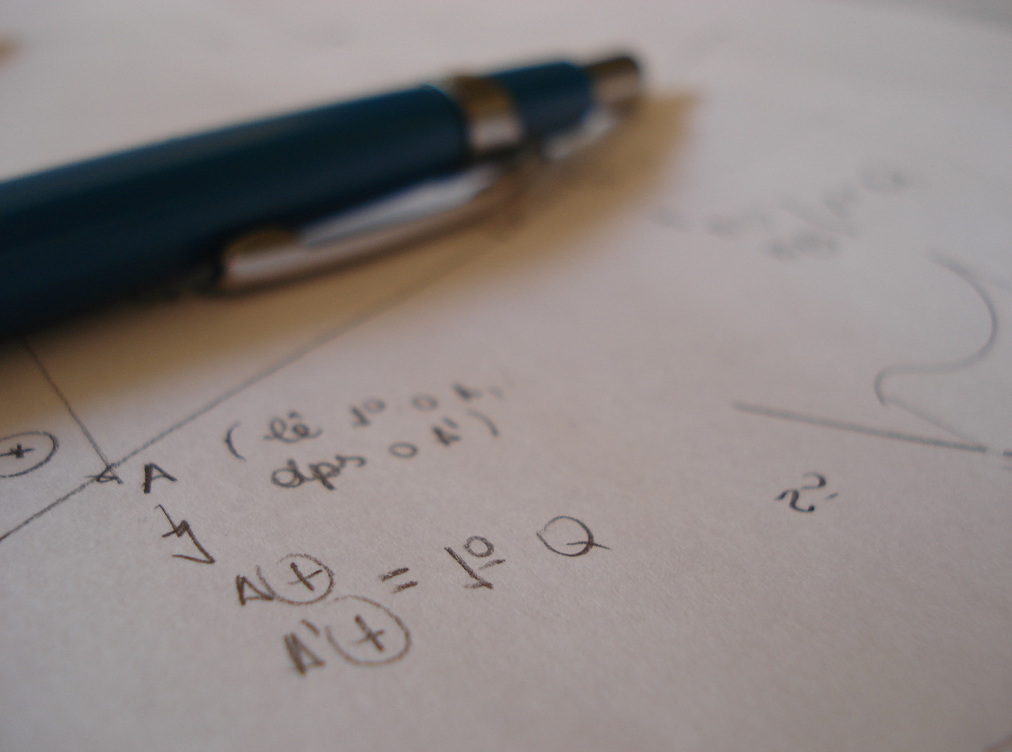 +
A
(lê 1º o A,
dps o A')
A + = 1º Q
A' +